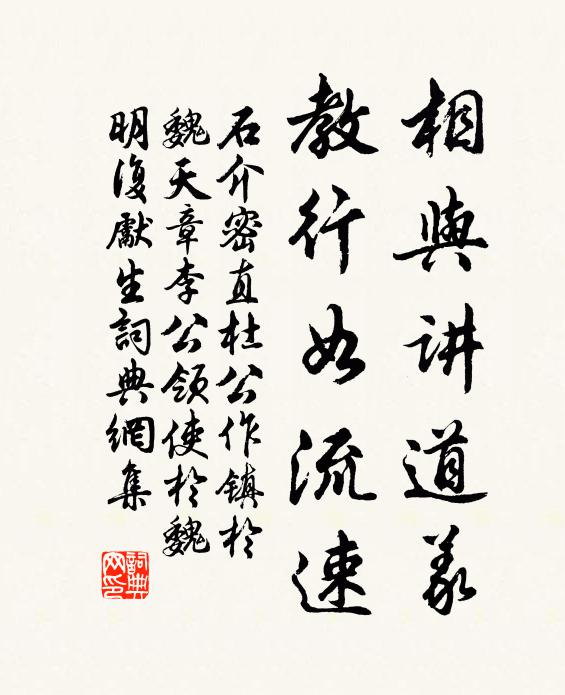 相與讲道義
教行如流速
石介密直杜公作镇於
魏天章李公领使於魏
明復獻生詞典網集
詞典网印